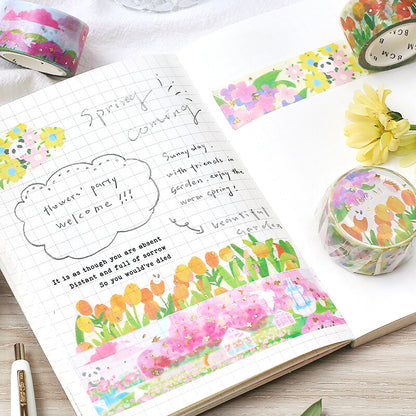 Spring
coming
Sunny day.
with friends in
garden. enjoy the
warm spring!
beautiful
garden
flowers' party
welcome !!!
It is as though you are absent
Distant and full of sorrow
So you would've died
BGM